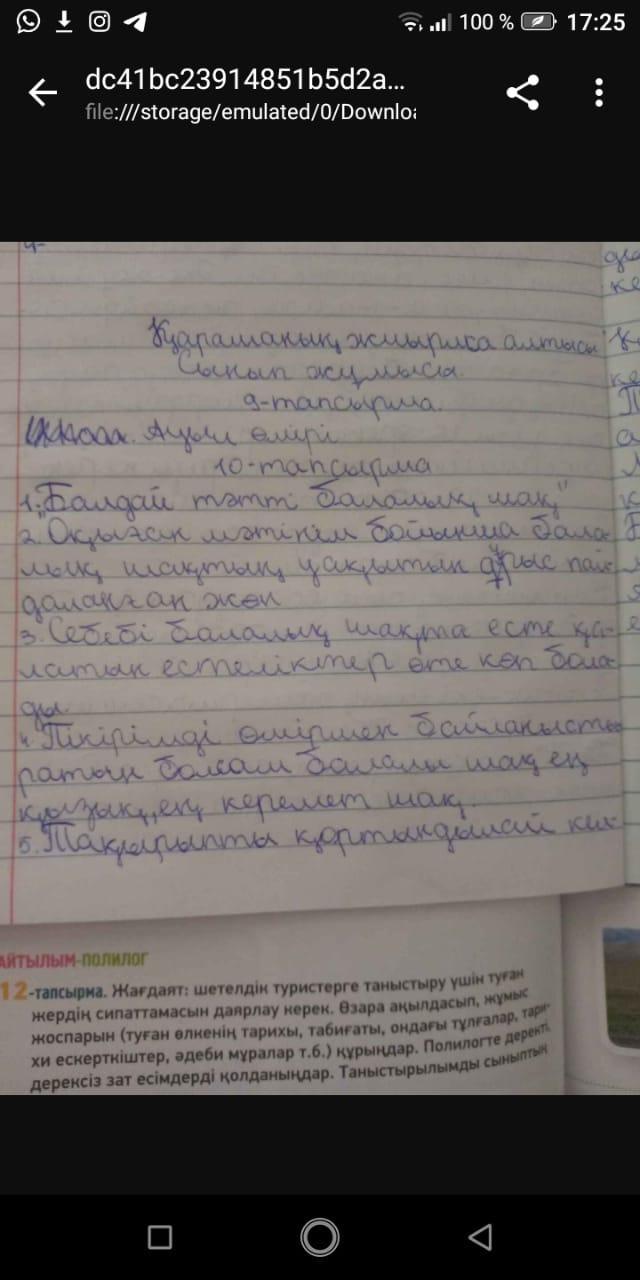 100 % 17:25
dc41bc23914851b5d2a...
file:///storage/emulated/0/Downlo
Қарашаның жиырма алтысы
Сынып жұмысы.
9-тапсырма.
Ауыл өмірі
10-тапсырма
1. "Балдай тәтті балалық шақ"
2. Оқығаң мәтінім бойынша бала-
лық шақтың уақытын дұрыс пай-
даланған жөн
3. Себебі балалық шақта есте қа-
латын естеліктер өте көп бола-
ды
4. Пікірімді өмірмен байланысты-
ратын болсам балалы шақ ең
қызық, ең керемет шақ.
5. Тақырыпты қортындылай ки
АЙТЫЛЫМ-ПОЛИЛОГ
12-тапсырма. Жағдаят: шетелдік туристерге таныстыру үшін туған
жердің сипаттамасын даярлау керек. Өзара ақылдасып, жұмыс
жоспарын (туған өлкенің тарихы, табиғаты, ондағы тұлғалар, тари-
хи ескерткіштер, әдеби мұралар т.б.) құрыңдар. Полилогте деректі,
дерексіз зат есімдерді қолданыңдар. Таныстырылымды сыныптың